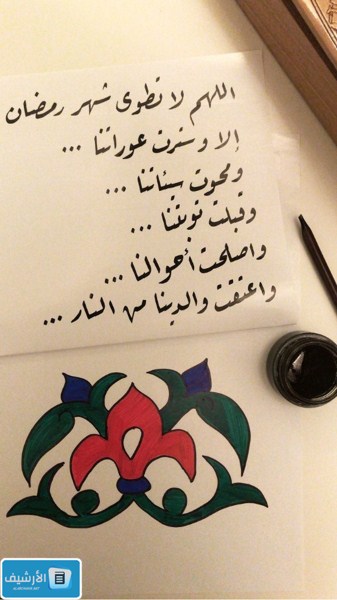 اللهم لا تطوى شهر رمضان
إلا وسترت عوراتنا ...
ومحوت سيئاتنا ...
وقبلت توبتنا ...
واصلحت أحوالنا ...
واعتقت والدينا من النار ...
الأرشيف